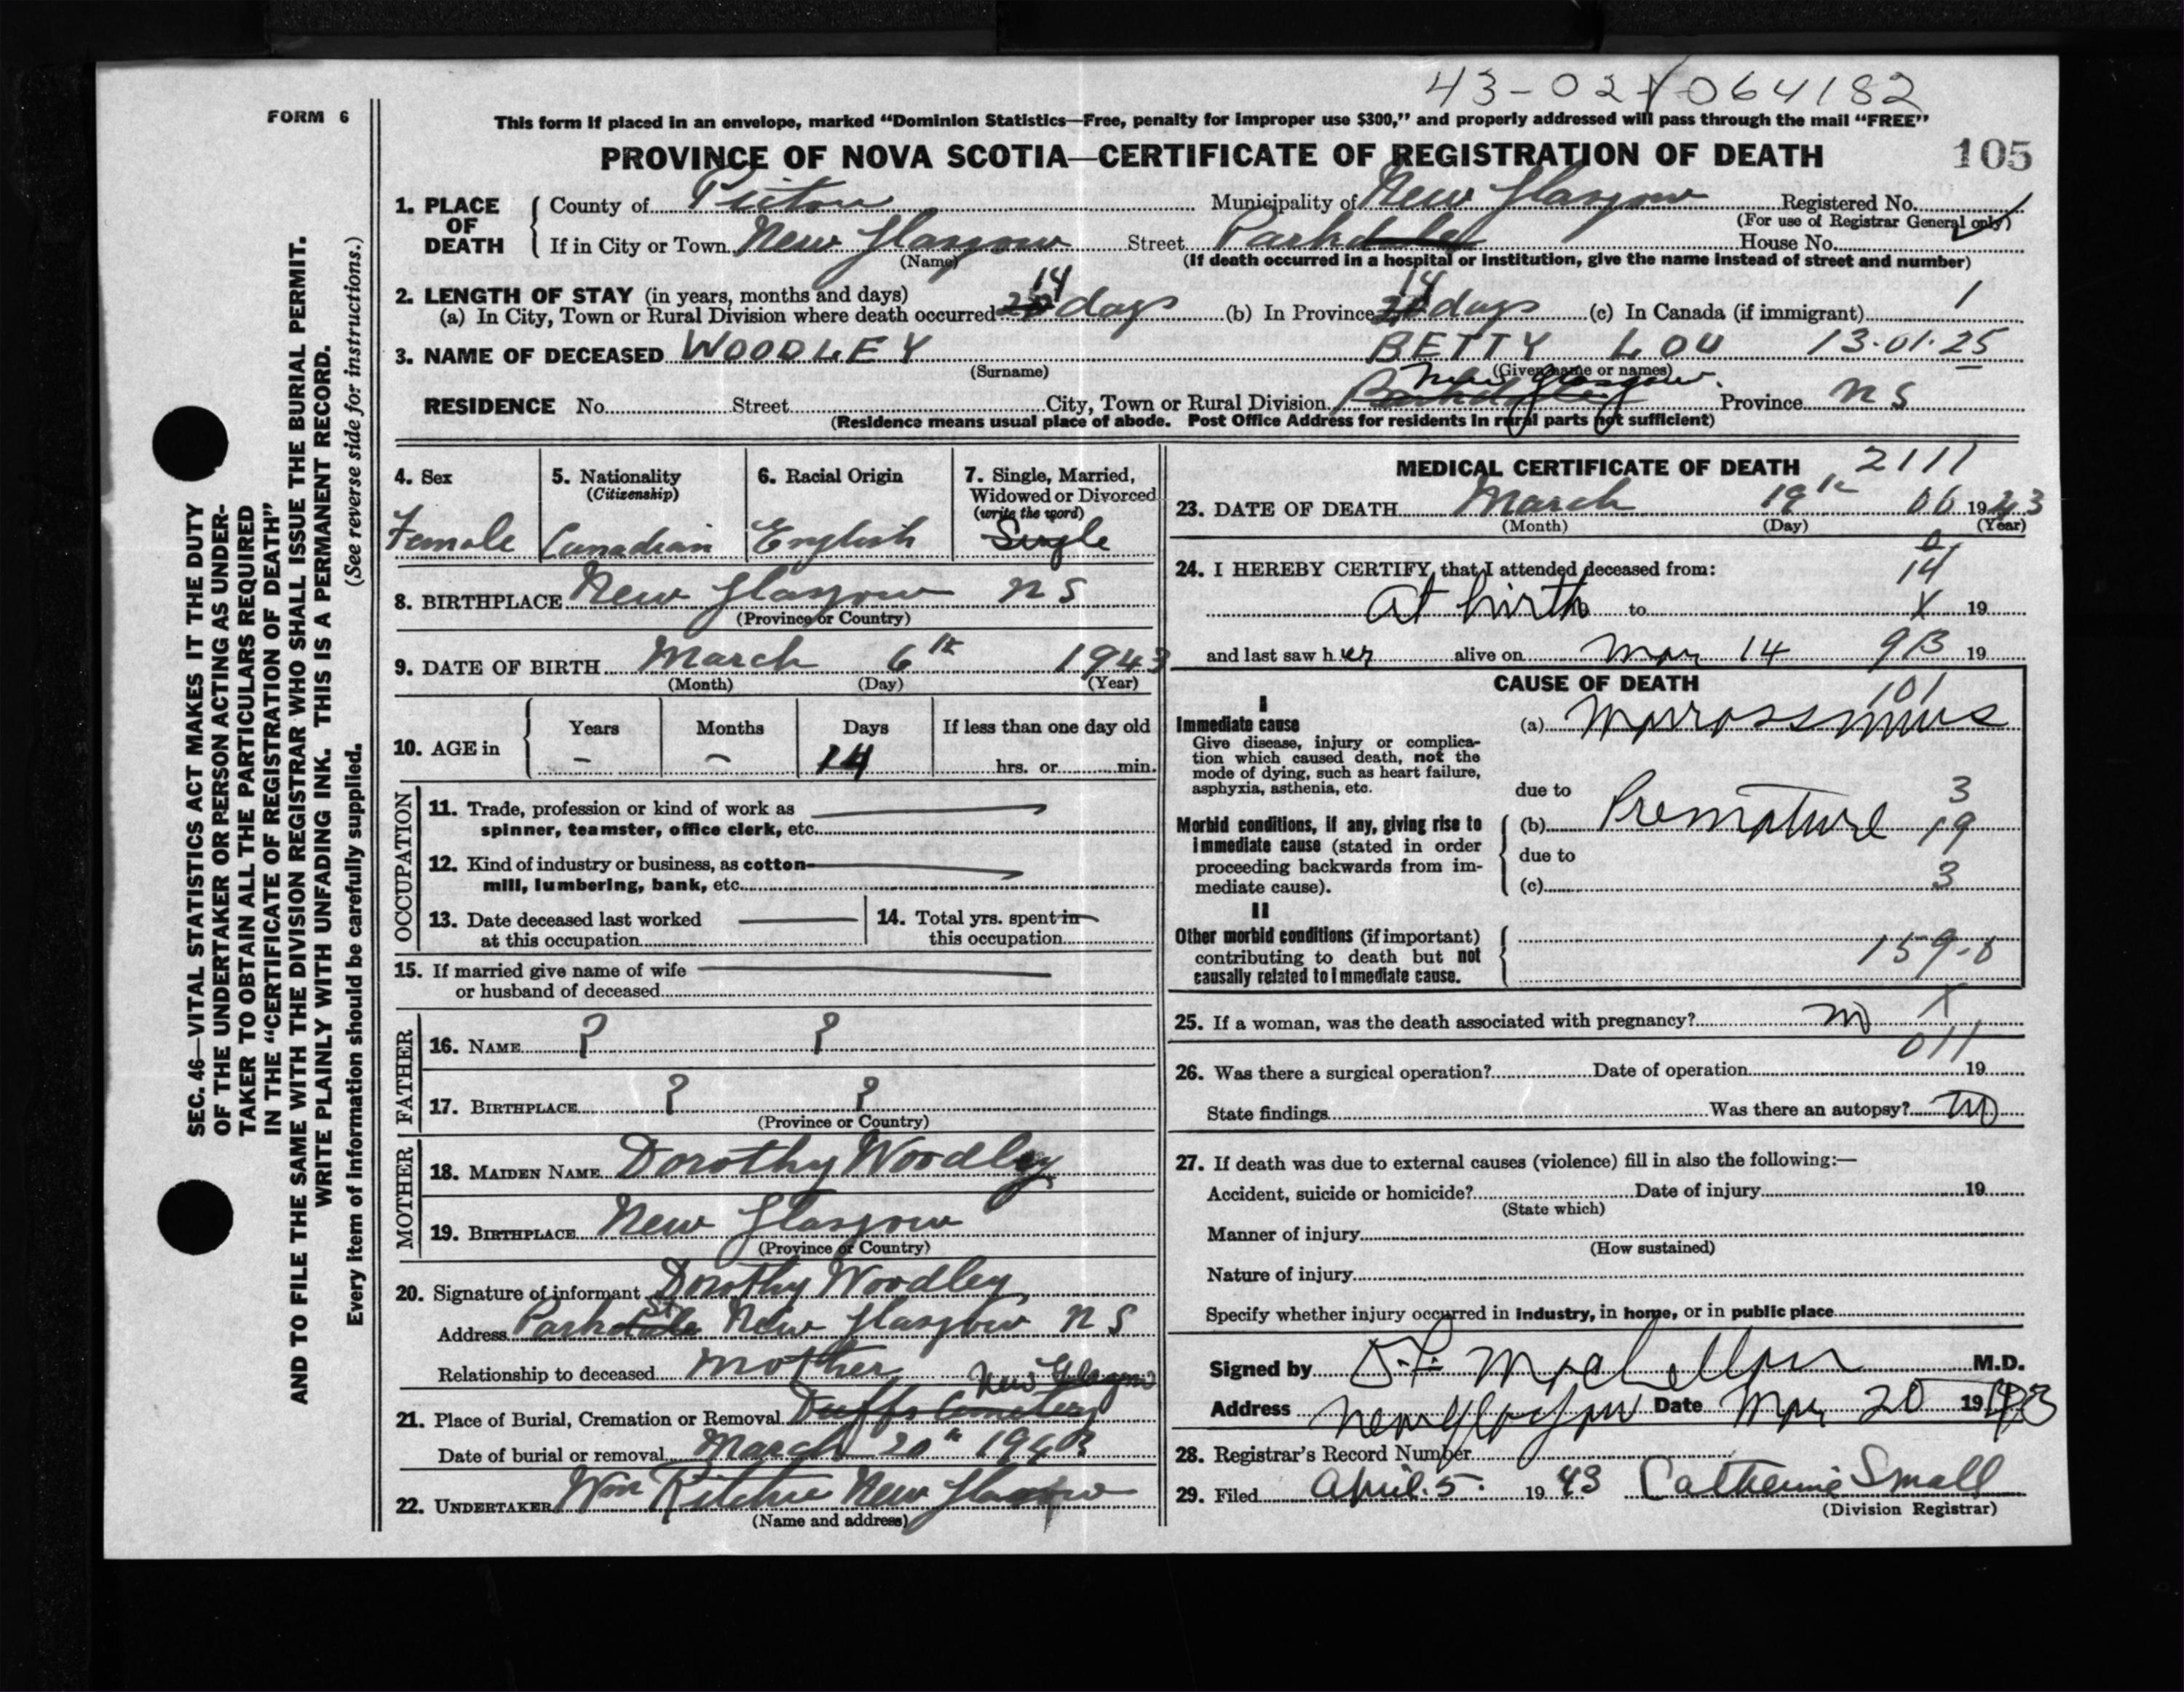 43-02-064182
FORM 6
This form if placed in an envelope, marked “Dominion Statistics—Free, penalty for improper use $300,” and properly addressed will pass through the mail “FREE”
PROVINCE OF NOVA SCOTIA—CERTIFICATE OF REGISTRATION OF DEATH 105
1. PLACE OF DEATH
County of Pictou Municipality of New Glasgow Registered No.
(For use of Registrar General only)
If in City or Town New Glasgow Street Parkdale House No.
(Name) (If death occurred in a hospital or institution, give the name instead of street and number)
2. LENGTH OF STAY (in years, months and days)
(a) In City, Town or Rural Division where death occurred 14 days (b) In Province 14 days (c) In Canada (if immigrant) 1
3. NAME OF DECEASED WOODLEY BETTY LOU 13-01-25
(Surname) (Given name or names)
New Glasgow.
RESIDENCE No. Street City, Town or Rural Division Province N S
(Residence means usual place of abode. Post Office Address for residents in rural parts not sufficient)
4. Sex 5. Nationality 6. Racial Origin 7. Single, Married,
(Citizenship) Widowed or Divorced
(write the word)
Female Canadian English Single
8. BIRTHPLACE New Glasgow N S
(Province or Country)
9. DATE OF BIRTH March 6th 1943
(Month) (Day) (Year)
10. AGE in Years Months Days If less than one day old
- - 14 hrs. or min.
OCCUPATION
11. Trade, profession or kind of work as
spinner, teamster, office clerk, etc.
12. Kind of industry or business, as cotton-
mill, lumbering, bank, etc.
13. Date deceased last worked
at this occupation
14. Total yrs. spent in
this occupation
15. If married give name of wife
or husband of deceased
FATHER
16. NAME ? ?
17. BIRTHPLACE ? ?
(Province or Country)
MOTHER
18. MAIDEN NAME Dorothy Woodley
19. BIRTHPLACE New Glasgow
(Province or Country)
20. Signature of informant Dorothy Woodley
Address Parkdale St New Glasgow N S
Relationship to deceased mother
New Glasgow
21. Place of Burial, Cremation or Removal Duffs Cemetery
Date of burial or removal March 20th 1943
22. UNDERTAKER Wm Ritchie New Glasgow
(Name and address)
MEDICAL CERTIFICATE OF DEATH 2111
23. DATE OF DEATH March 19th 06 1943
(Month) (Day) (Year)
24. I HEREBY CERTIFY, that I attended deceased from: 14
At birth to X 19
and last saw her alive on Mar 14 913 19
CAUSE OF DEATH
101
I
Immediate cause (a)
Give disease, injury or complica-
tion which caused death, not the
mode of dying, such as heart failure,
asphyxia, asthenia, etc.
due to 3
Morbid conditions, if any, giving rise to (b) Premature 19
immediate cause (stated in order due to
proceeding backwards from im- 3
mediate cause). (c)
II
Other morbid conditions (if important)
contributing to death but not 159-0
causally related to immediate cause.
25. If a woman, was the death associated with pregnancy? no X
011
26. Was there a surgical operation? Date of operation 19
State findings Was there an autopsy? no
27. If death was due to external causes (violence) fill in also the following:—
Accident, suicide or homicide? Date of injury 19
(State which)
Manner of injury
(How sustained)
Nature of injury
Specify whether injury occurred in industry, in home, or in public place
Signed by M.D.
Address New Glasgow Date Mar 20 1943
28. Registrar's Record Number
29. Filed April 5. 1943 Catherine Small
(Division Registrar)
SEC. 46—VITAL STATISTICS ACT MAKES IT THE DUTY
OF THE UNDERTAKER OR PERSON ACTING AS UNDER-
TAKER TO OBTAIN ALL THE PARTICULARS REQUIRED
IN THE “CERTIFICATE OF REGISTRATION OF DEATH”
AND TO FILE THE SAME WITH THE DIVISION REGISTRAR WHO SHALL ISSUE THE BURIAL PERMIT.
WRITE PLAINLY WITH UNFADING INK. THIS IS A PERMANENT RECORD.
Every item of information should be carefully supplied. (See reverse side for instructions.)